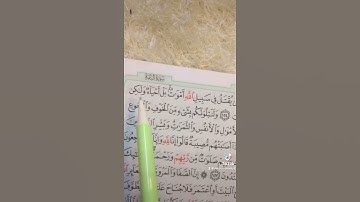 سورة البقرة
يُقْتَلُ فِي سَبِيلِ اللَّهِ أَمْوَٰتٌۢ بَلْ أَحْيَآءٌ وَلَٰكِن
وَلَنَبْلُوَنَّكُم بِشَيْءٍ مِّنَ الْخَوْفِ وَالْجُوعِ
الْأَمْوَٰلِ وَالْأَنفُسِ وَالثَّمَرَٰتِ وَبَشِّرِ
أَصَٰبَتْهُم مُّصِيبَةٌ قَالُوٓا۟ إِنَّا لِلَّهِ وَإِنَّآ رَٰجِعُونَ
صَلَوَٰتٌ مِّن رَّبِّهِمْ وَرَحْمَةٌ
إِنَّ الصَّفَا وَالْمَرْوَةَ
الْبَيْتَ أَوِ اعْتَمَرَ فَلَا جُنَاحَ عَلَيْهِ